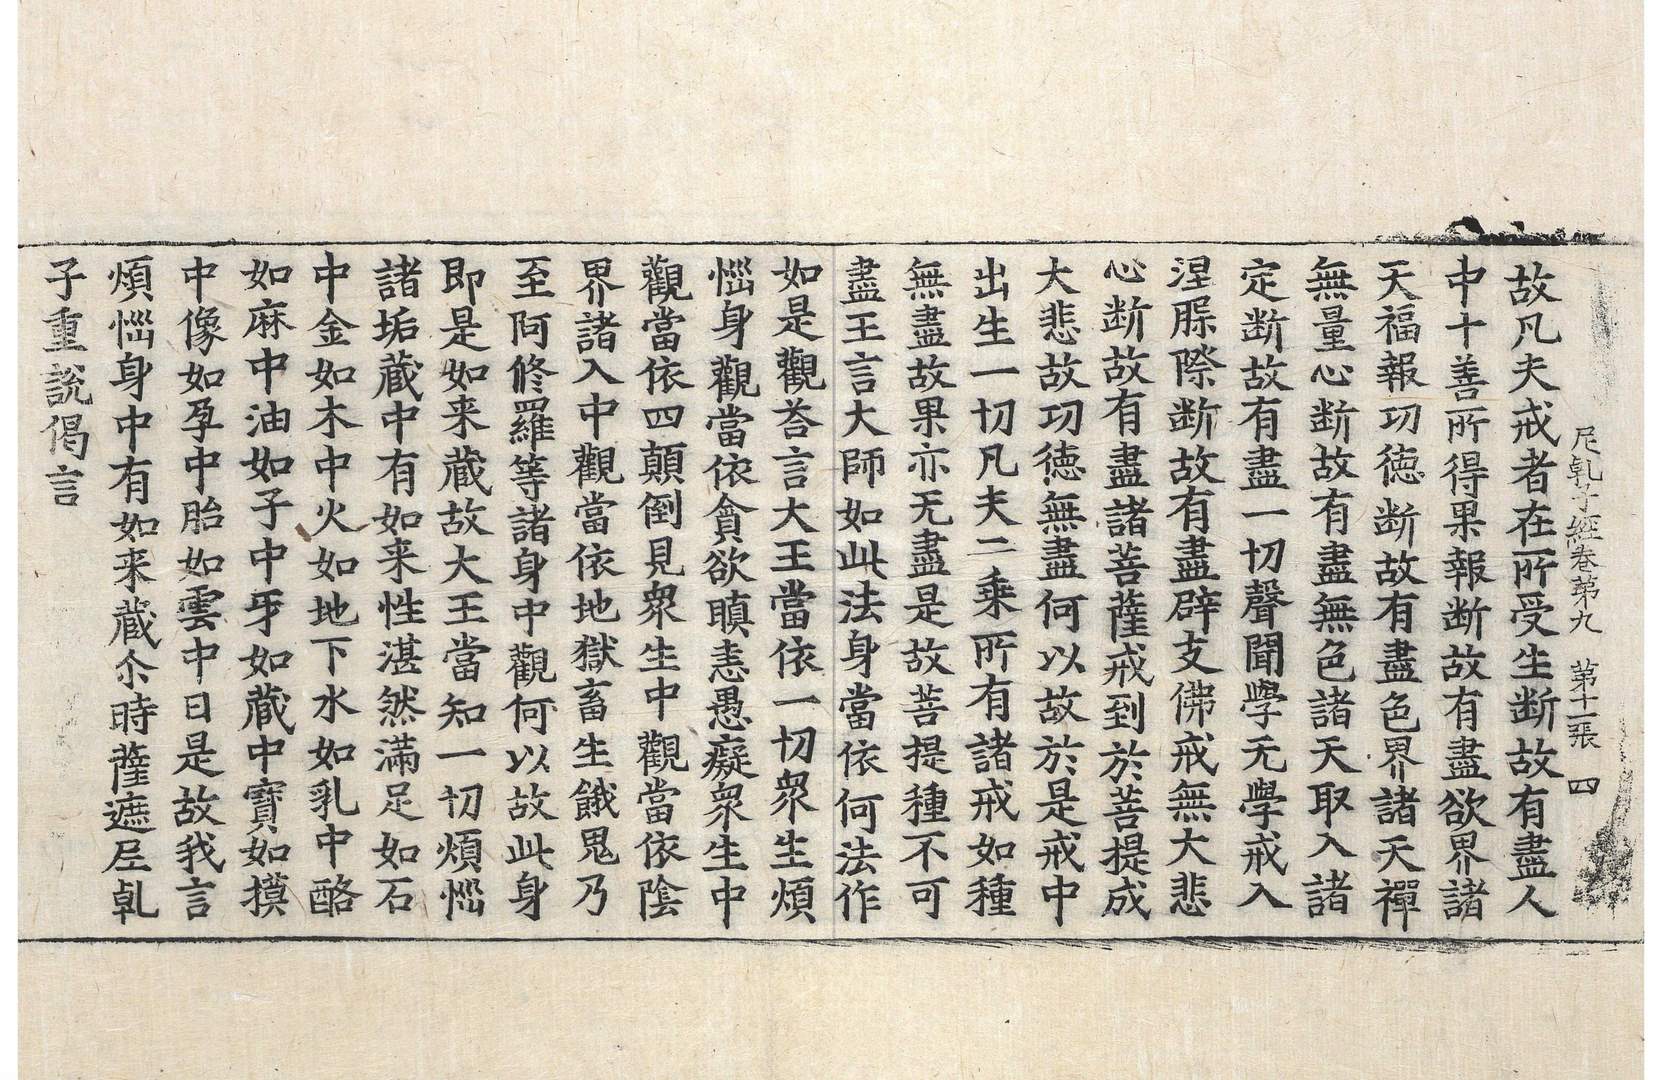 尼乹子經卷第九　第十一張　四
故凡夫戒者在所受生断故有盡人
中十善所得果報断故有盡欲界諸
天福報功徳断故有盡色界諸天禪
無量心断故有盡無色諸天取入諸
定断故有盡一切聲聞學无學戒入
涅脲際断故有盡辟支佛戒無大悲
心断故有盡諸菩薩戒到於菩提成
大悲故功徳無盡何以故於是戒中
出生一切凡夫二乘所有諸戒如種
無盡故果亦无盡是故菩提種不可
盡王言大師如此法身當依何法作
如是觀荅言大王當依一切衆生煩
惱身觀當依貪欲瞋恚愚癡衆生中
觀當依四顛倒見衆生中觀當依陰
界諸入中觀當依地獄畜生餓鬼乃
至阿修羅等諸身中觀何以故此身
即是如来蔵故大王當知一切煩惱
諸垢蔵中有如来性湛然滿足如石
中金如木中火如地下水如乳中酪
如麻中油如子中牙如蔵中寶如摸
中像如孕中胎如雲中日是故我言
煩惱身中有如来蔵尒時薩遮尼乹
子重說偈言